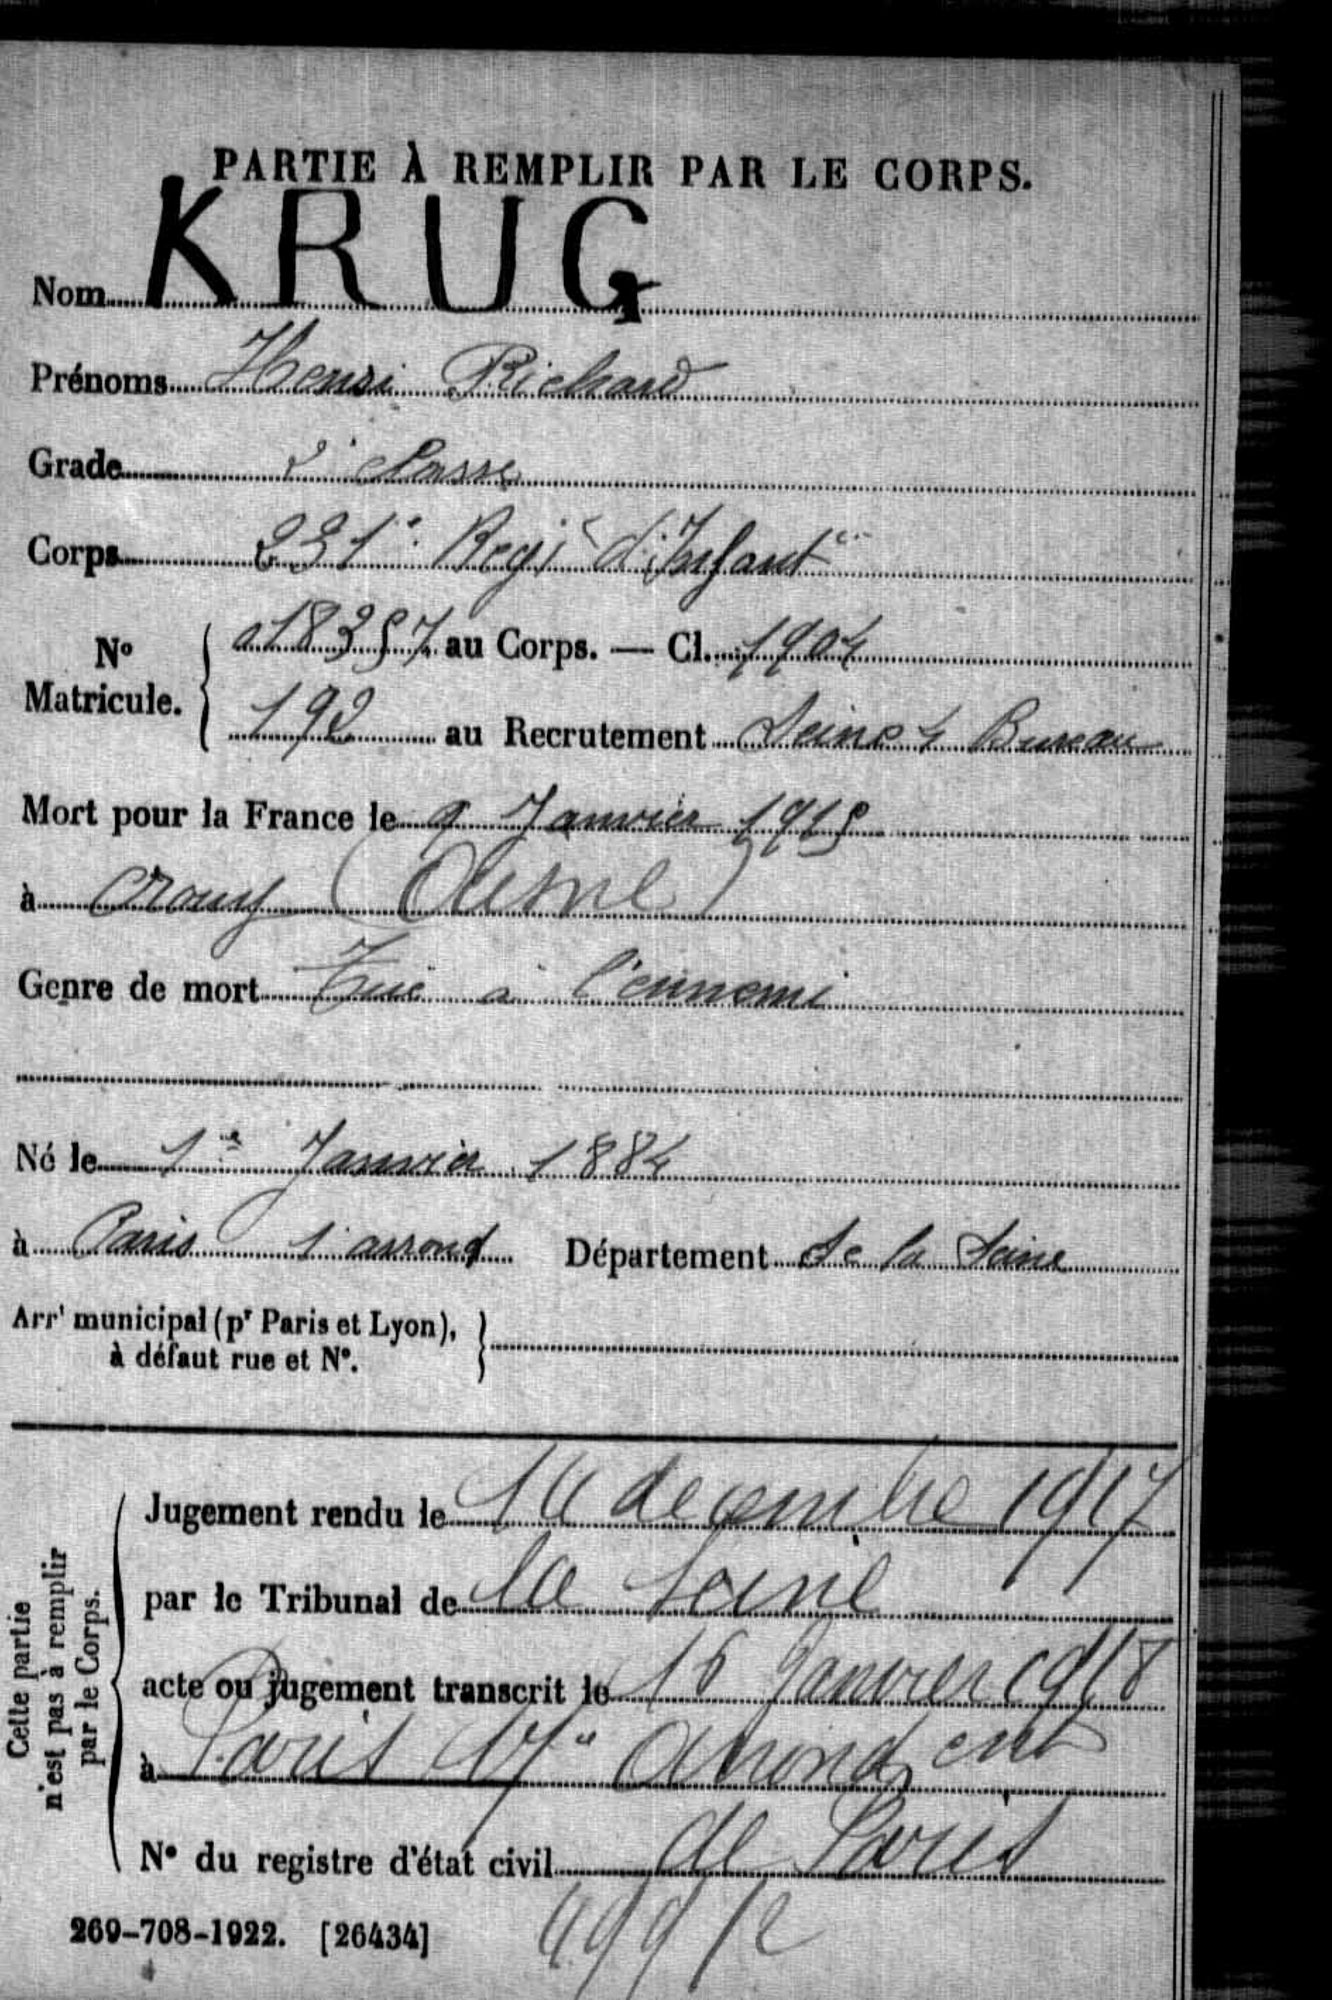 PARTIE À REMPLIR PAR LE CORPS.
Nom KRUG
Prénoms Henri Richard
Grade 2e classe
Corps 231e Regt d'Infantie
No Matricule. 018357 au Corps. — Cl. 1904
192 au Recrutement Seine 4 Bureau
Mort pour la France le 9 Janvier 1915
à Crouy (Aisne)
Genre de mort Tué à l'ennemi
Né le 1er Janvier 1884
à Paris arrond Département de la Seine
Arrt municipal (pr Paris et Lyon),
à défaut rue et No.
Cette partie
n'est pas à remplir
par le Corps.
Jugement rendu le 14 decembre 1917
par le Tribunal de la Seine
acte ou jugement transcrit le 16 Janvier 1918
à Paris 17e Arrondent
No du registre d'état civil de Paris
269-708-1922. [26434]
499/2